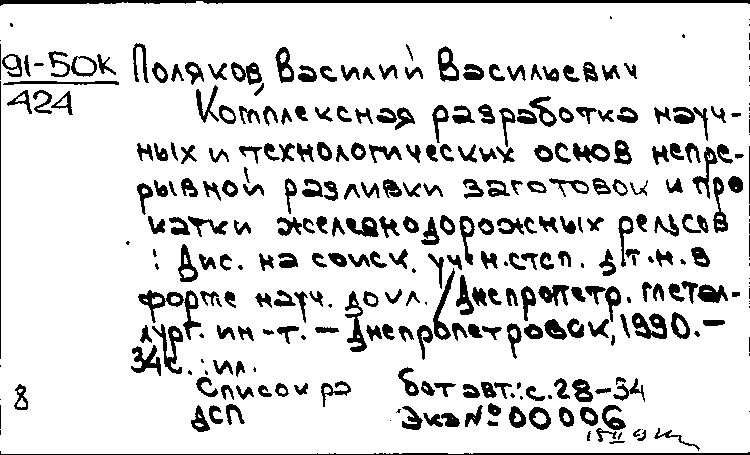 91-50к Поляков, Василий Васильевич
424
Комплексная разработка науч-
ных и технологических основ непре-
рывной разливки заготовок и про
катки железнодорожных рельсов
: Дис. на соиск. учен.степ. д.т.н. в
форме науч. докл. / Днепропетр. метал-
лург. ин-т. — Днепропетровск, 1990. —
34с. : ил.
8 Список ра бот авт.: с. 28-34
ДСП Экз № 00006